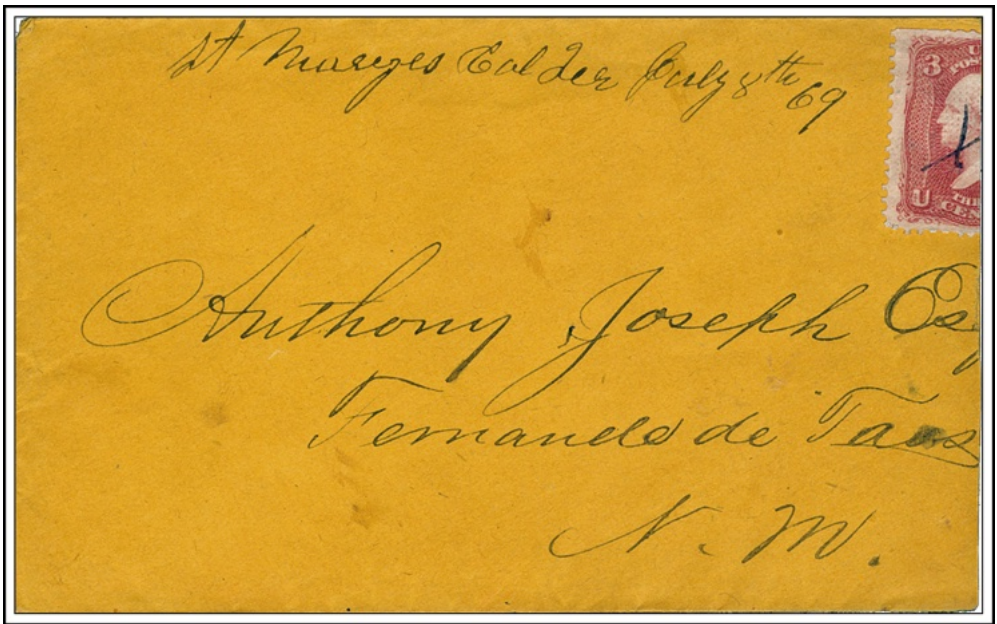 St Maryes Col Ter July 8th 69
3
U
U
CEN
Anthony Joseph Es
Fernando de Taos
N. M.